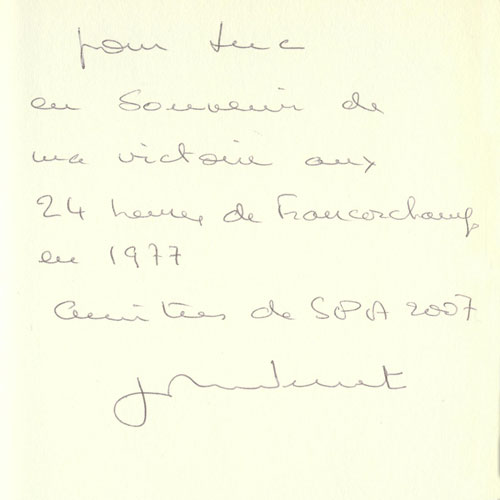 pour Luc
en Souvenir de
ma victoire aux
24 heures de Francorchamps
en 1977
Amitiés de SPA 2007